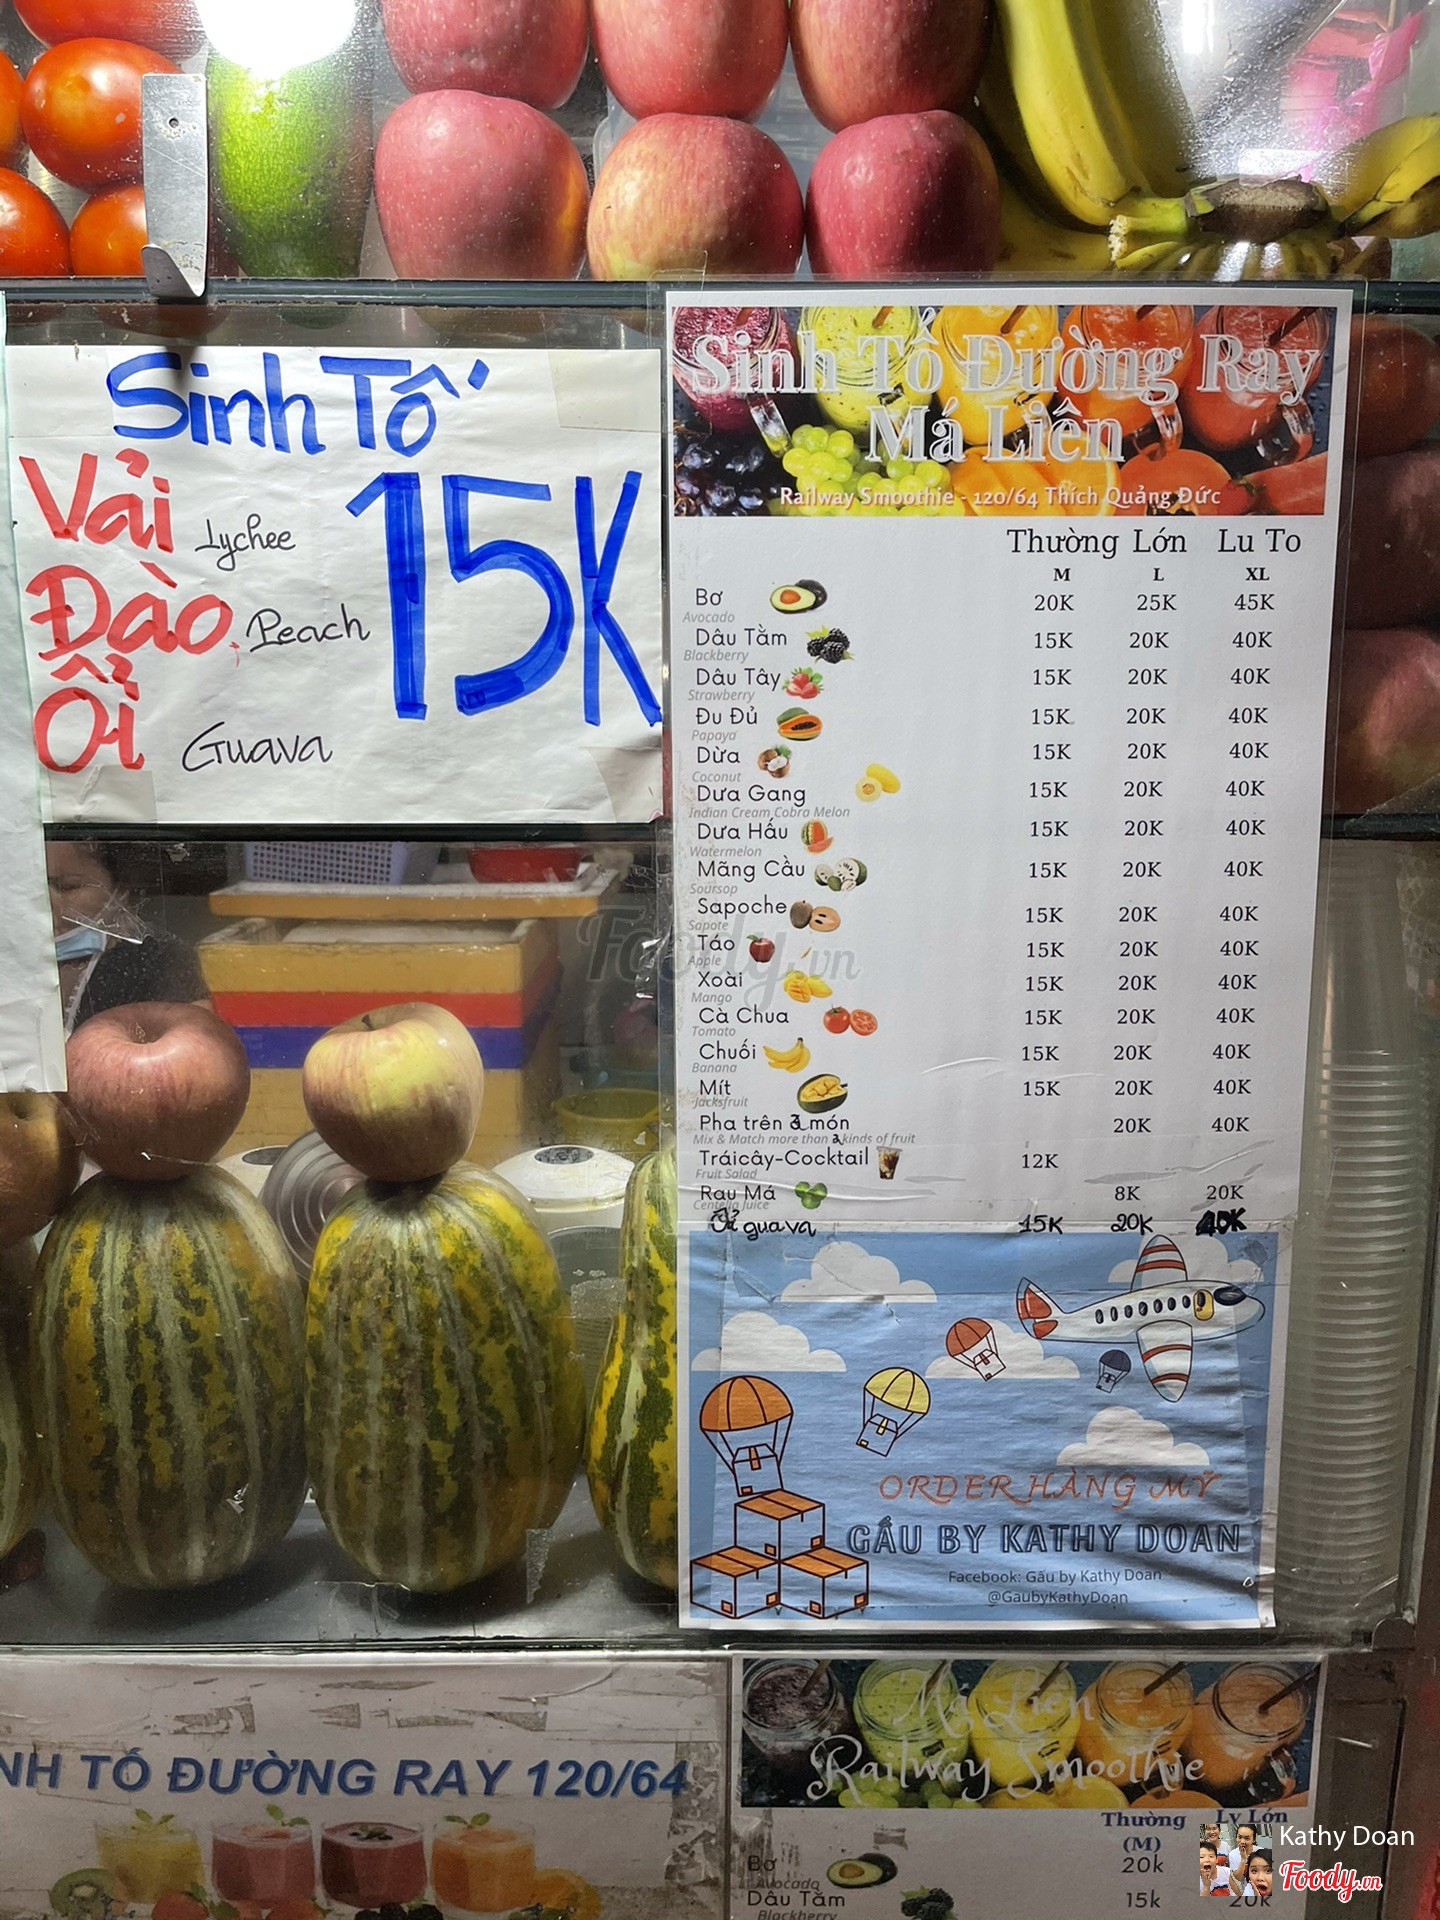 Sinh Tố
15K
Vải Lychee
Đào, Peach
Ổi Guava
Sinh Tố Đường Ray
Má Liên
Railway Smoothie - 120/64 Thích Quảng Đức
Thường Lớn Lu To
M L XL
Bơ 20K 25K 45K
Avocado
Dâu Tằm 15K 20K 40K
Blackberry
Dâu Tây 15K 20K 40K
Strawberry
Đu Đủ 15K 20K 40K
Papaya
Dừa 15K 20K 40K
Coconut
Dưa Gang 15K 20K 40K
Indian Cream Cobra Melon
Dưa Hấu 15K 20K 40K
Watermelon
Mãng Cầu 15K 20K 40K
Soursop
Sapoche 15K 20K 40K
Sapote
Táo 15K 20K 40K
Apple
Xoài 15K 20K 40K
Mango
Cà Chua 15K 20K 40K
Tomato
Chuối 15K 20K 40K
Banana
Mít 15K 20K 40K
Jacksfruit
Pha trên 3 món 20K 40K
Mix & Match more than 3 kinds of fruit
Tráicây-Cocktail 12K
Fruit Salad
Rau Má 8K 20K
Centella Juice
Ổi guava 15K 20K 40K
ORDER HÀNG MỸ
GẤU BY KATHY DOAN
Facebook: Gấu by Kathy Doan
@GaubyKathyDoan
Foody.vn
NH TỐ ĐƯỜNG RAY 120/64
Má Liên
Railway Smoothie
Thường Ly Lớn
(M)
Bơ 20k
Avocado
Dâu Tằm 15k 20k
Blackberry
Kathy Doan
Foody.vn